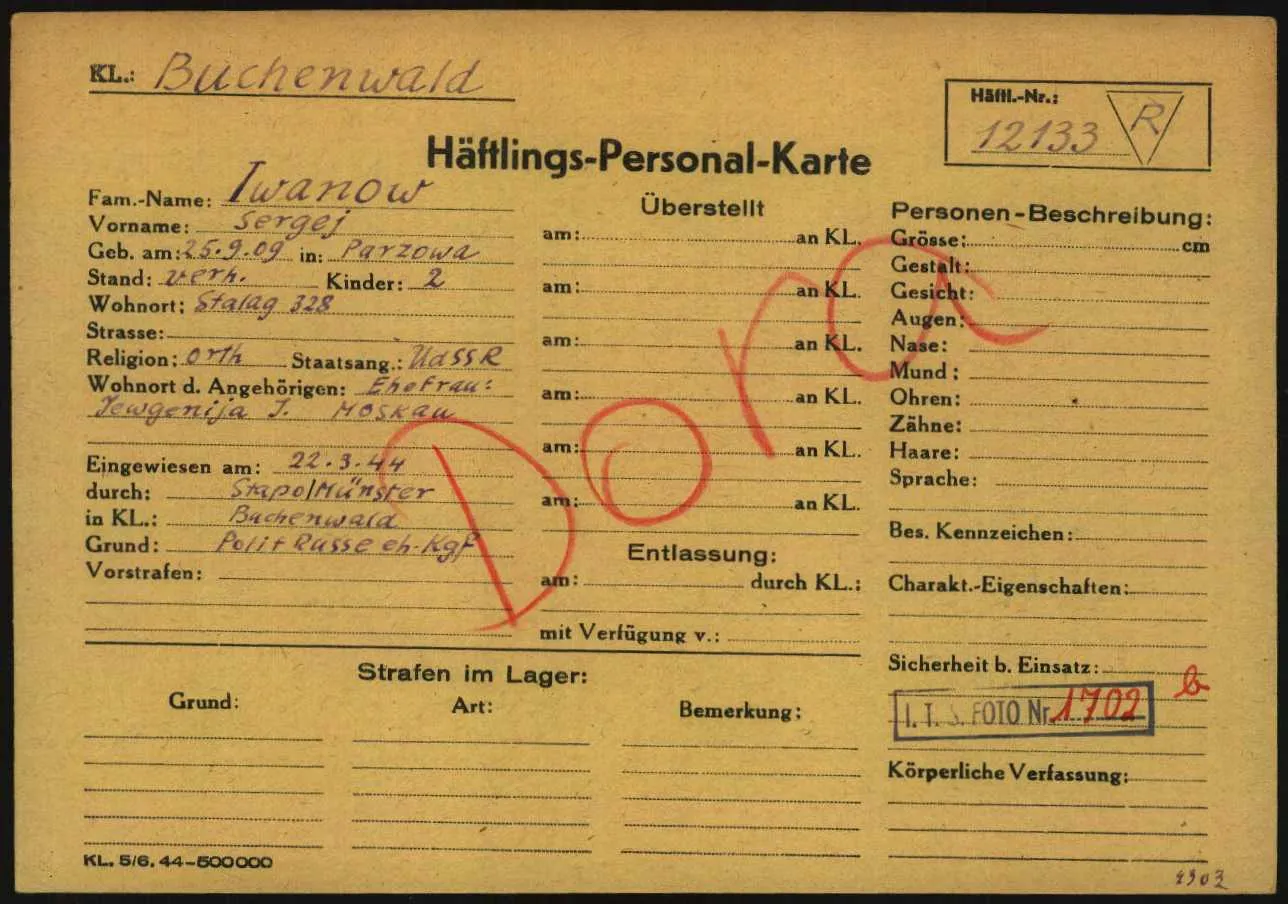 KL.: Buchenwald
Häftl.-Nr.:
12133 R
Häftlings-Personal-Karte
Fam.-Name: Iwanow
Vorname: Sergej
Geb. am: 25.9.09 in: Parzowa
Stand: verh. Kinder: 2
Wohnort: Stalag 328
Strasse:
Religion: orth Staatsang.: UdSSR
Wohnort d. Angehörigen: Ehefrau:
Jewgenija J. Moskau
Eingewiesen am: 22.3.44
durch: Stapo/Münster
in KL.: Buchenwald
Grund: Polit Russe eh. Kgf
Vorstrafen:
Überstellt
am: an KL.
am: an KL.
am: an KL.
am: an KL.
am: an KL.
am: an KL.
Entlassung:
am: durch KL.:
mit Verfügung v.:
Dora
Personen-Beschreibung:
Grösse: cm
Gestalt:
Gesicht:
Augen:
Nase:
Mund:
Ohren:
Zähne:
Haare:
Sprache:
Bes. Kennzeichen:
Charakt.-Eigenschaften:
Sicherheit b. Einsatz:
I. T. S. FOTO Nr. 1702 b
Körperliche Verfassung:
Strafen im Lager:
Grund: Art: Bemerkung:
KL. 5/6. 44-500000